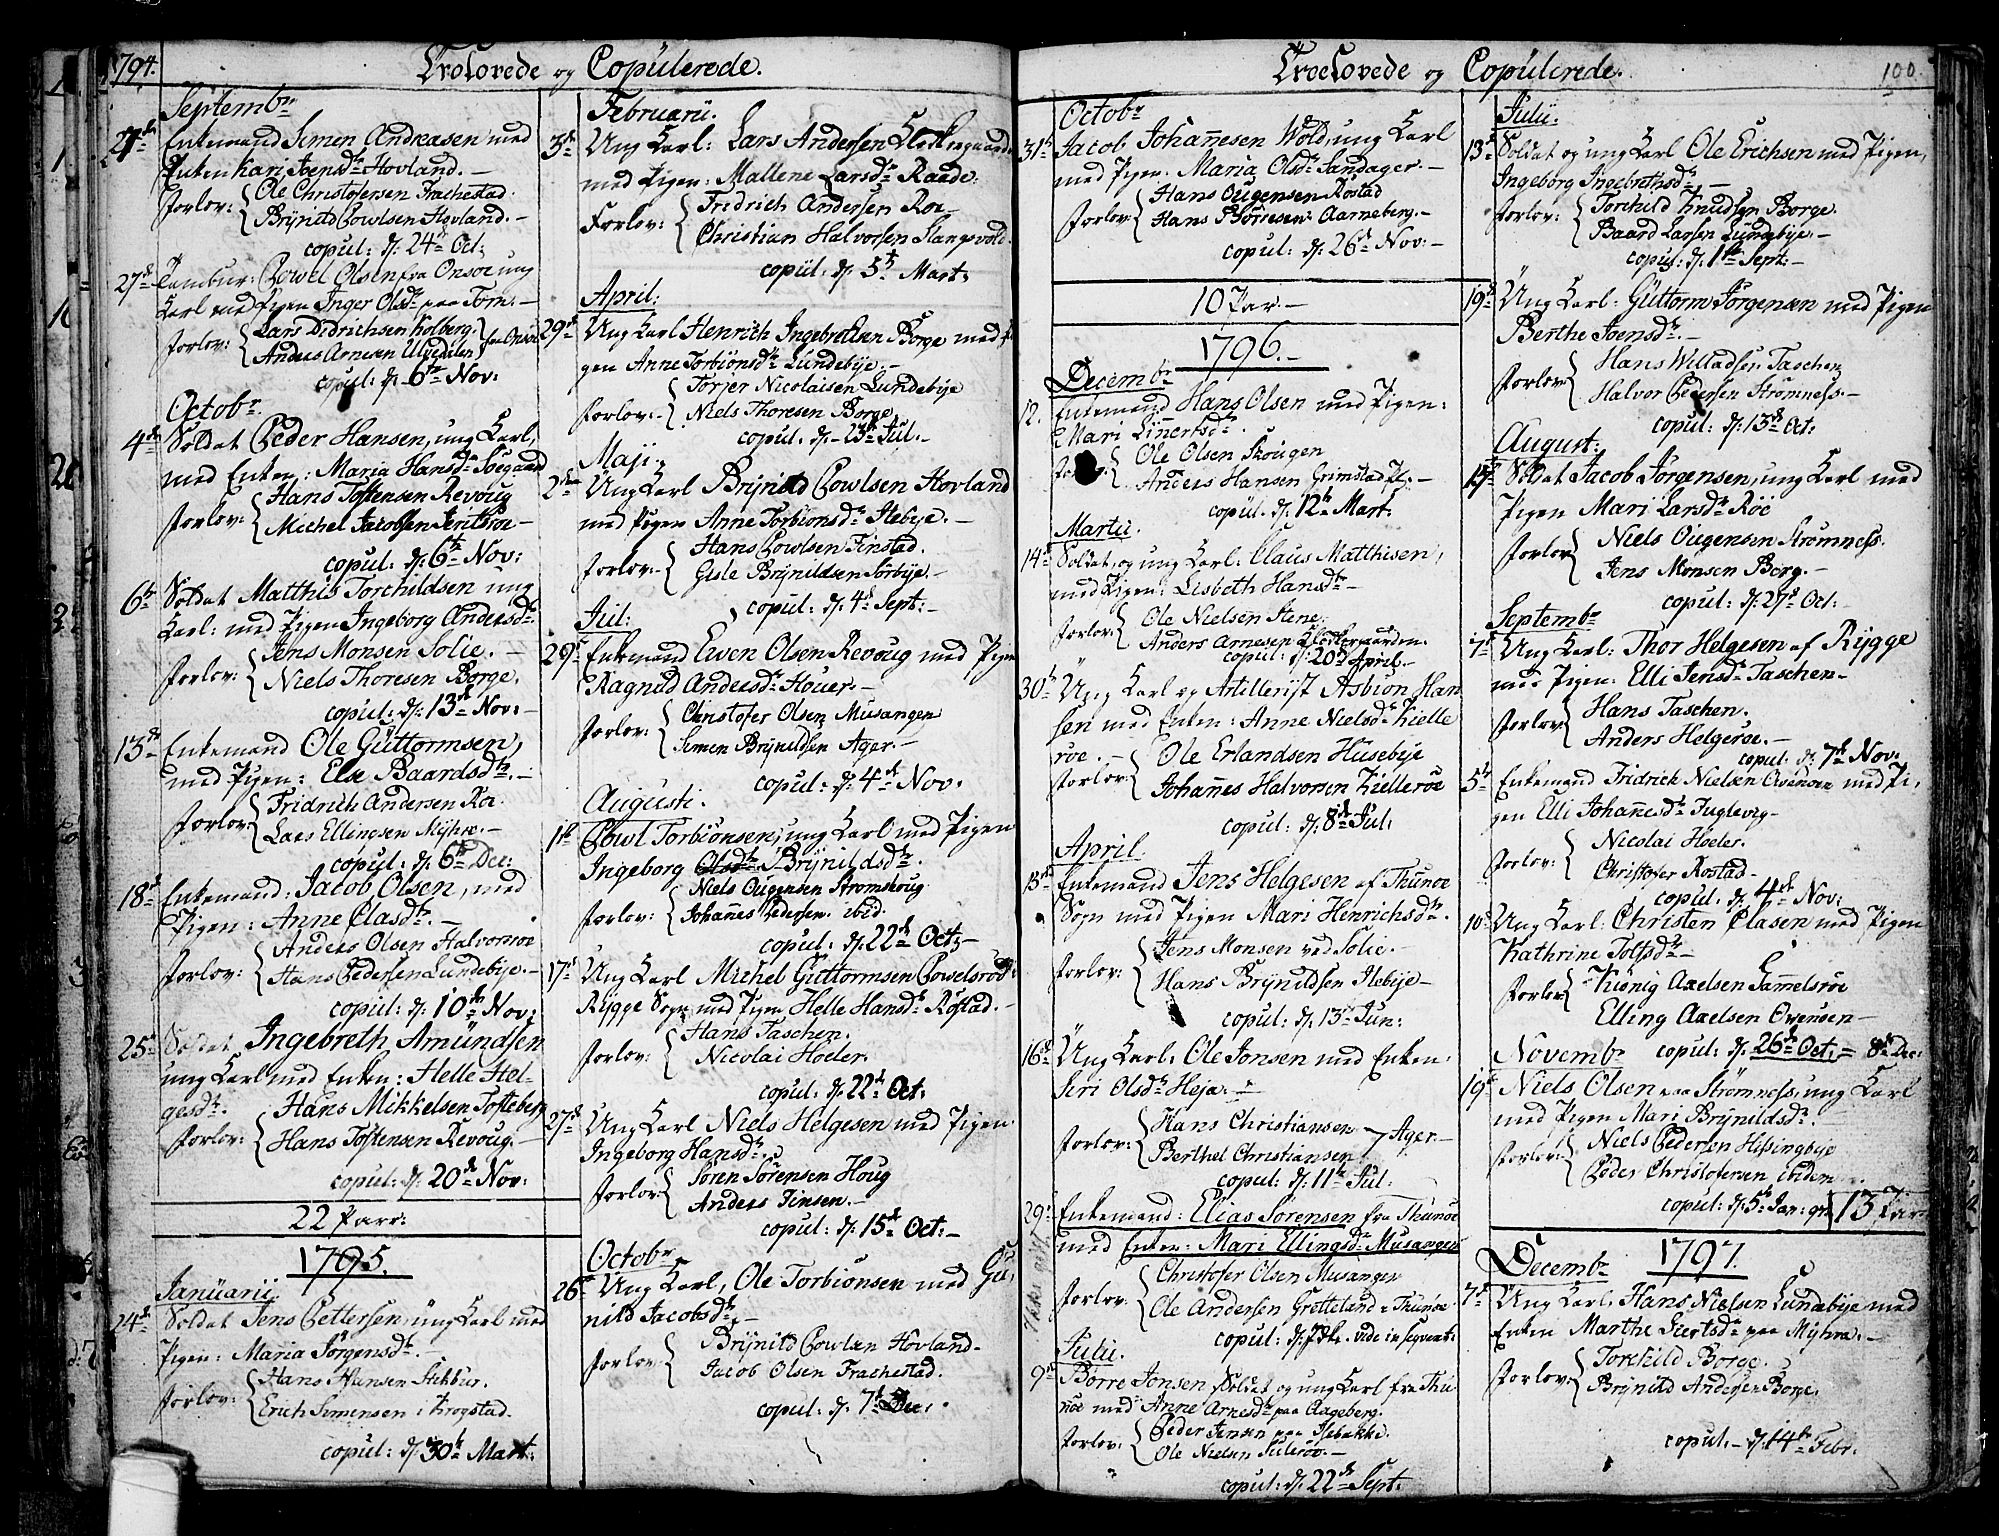 1794. Trolovede og Copulerede.
Septembr
27de Enkemand Simen Andreasen med
Enken Kari Svendsdr Hovland. —
Forlov: Ole Christofersen Frachestad.
Brÿnild Powlsen Hovland. —
copul: d. 24de Oct:
27de Tambur: Powel Olsen fra Onsoe ung
Karl med Pigen Inger Olsdr paa Tom. —
Forlov: Lars Didrichsen Kolberg.
Anders Arnesen Ulvedalen fra Onsoe
copul: d. 6te Nov:
Octobr
4de Soldat Peder Hansen, ung Karl,
med Enken: Maria Hansdr Soegaard
Forlov: Hans Toftensen Revoug
Michel Jacobsen
copul: d. 6te Nov:
6te Soldat Matthis Torchildsen ung
Karl: med Pigen Ingeborg Andersdr
Forlov: Jens Monsen Solie. —
Niels Thoresen Borge.
copul: d. 13de Nov:
13de Enkemand Ole Güttormsen,
med Pigen: Else Baardsdr. —
Forlov: Fridrich Andersen Roe
Lars Ellingsen Mÿhre. —
copul: d. 6te Dec:
18de Enkemand: Jacob Olsen, med
Pigen: Anne Clasdr. —
Forlov: Anders Olsen Halvorsroe
Hans Pedersen Lundebÿe. —
copul: d. 10de Nov:
25de Soldat Ingebreth Amündsen
ung Karl med Enken: Helle Hel-
gesdr.
Forlov: Hans Mikkelsen Tofteberg
Hans Toftensen Revoug. —
copul: d. 20de Nov:
22 Parr:
1795.
Januarii
24de Soldat Jens Pettersen, ung Karl med
Pigen: Maria Jörgensdr. —
Forlov: Hans Hansen Stikbur.
Erich Simensen i Krogstad.
copul: d. 30te Mart:
Februarii.
3de Ung Karl: Lars Andersen Klostergaarden
med Pigen: Mallene Larsdr Raade:
Forlov: Fridrich Andersen Roe —
Christian Halvorsen Slangsvold.
copül: d. 5te Mart:
April:
29de Ung Karl Henrich Ingebrethsen Borge med Pi
gen Anne Torbiönsdr Lundebÿe. —
Forlov: Torjer Nicolaisen Lundebÿe
Niels Thoresen Borge
copul: d. 23de Jul. —
Maji —
2den Ung Karl Brÿnild Powlsen Hovland
med Pigen Anne Torbionsdr Stebÿe. —
Forlov: Hans Powlsen Finstad.
Gisle Brÿnildsen Sörbÿe. —
copul: d. 4de Sept: —
Jul:
29de Enkemand Ewen Olsen Revoug med Pigen
Ragnild Andersdr Houer. —
Forlov: Christofer Olsen Musangen
Simen Brÿnildsen Ager. —
copul: d. 4de Nov:
Augusti.
1ste Powl Torbiönsen, ung Karl med Pigen
Ingeborg Olsdr Brÿnildsdr.
Forlov: Niels Ougensen Stromskoug
Johannes Pedersen ibid.
copul: d. 22de Oct: —
17de Ung Karl Michel Güttormsen Powelsrod
Rÿgge Sogn med Pigen Helle Hansdr Rostad. —
Forlov: Hans Taschen.
Nicolai Hoeler.
copul: d. 22de Oct:
27de Ung Karl Niels Helgesen med Pigen
Ingeborg Hansdr. —
Forlov: Sören Sörensen Houg
Anders Jensen. —
copul: d. 15de Oct: —
Octobr
26de Ung Karl, Ole Torbionsen med Gu,
nild Jacobsdr. —
Forlov: Brÿnild Powlsen Hovland —
Jacob Olsen Frachestad.
copul: d. 7de Dec:
Troelovede og Copulerede. 100.
Octobr
31te Jacob Johannesen Wold, ung Karl
med Pigen: Maria Olsdr Sandager. —
Forlov: Hans Ougensen Rostad
Hans Thoresen Aarneberg. —
copul: d. 26de Nov: —
10 Par. —
1796. —
Decembr
12. Enkemand Hans Olsen med Pigen:
Mari Linertsdr.
Ole Olsen Skougen
Anders Hansen Grimstad pl: —
copul. d. 12te Mart:
Martii.
14de Soldat, og ung Karl: Claus Matthisen,
med Pigen: Lisbeth Hansdr —
Forlov: Ole Nielsen Stene.
Anders Arnesen Klostergaarden.
copul: d. 20de April. —
30te Ung Karl og Artillerist Asbion Han
sen med Enken: Anne Nielsdr Kielle
roe. —
Forlov: Ole Erlandsen Husebÿe
Johannes Halvorsen Kiellerøe
copul: d. 8de Jul:
April.
13de Enkemand Jens Helgesen af Thunoe
Sogn med Pigen Mari Henrichsdr.
Forlov: Jens Monsen ved Solie. —
Hans Brÿnildsen Stebÿe —
copul: d. 13de Jun:
16de Ung Karl: Ole Jonsen med Enken:
Siri Olsdr Heja. —
Forlov: Hans Christiansen
Berthel Christiansen Ager. —
copul: d. 11te Jul:
29de Enkemand: Elias Sorensen fra Thunoe
med Enken: Mari Ellingsdr Musangen
Forlov: Christofer Olsen Musangen
Ole Andersen Grotteland i Thunoe.
copul: d. Ikke. vide in sequent:
Julii.
9de Börre Jonsen Soldat og ung Karl fra Thu
noe med Anne Arnesdr paa Aageberg.
Forlov: Peder Jensen paa Isebakke.
Ole Nielsen Suleröe. —
copul: d. 22de Sept:
Julii.
13de Soldat og ung Karl Ole Erichsen med Pigen,
Ingeborg Ingebrethsdr —
Forlov: Torchild Knudsen Borge.
Baard Larsen Lundebÿe. —
copul: d. 1ste Sept: —
19de Ung Karl: Güttorm Jörgensen med Pigen
Berthe Svensdr. —
Forlov: Hans Willadsen Taschen
Halvor Pedersen Strömness. —
copul: d. 13de Oct:
August:
15de Soldat Jacob Jörgensen, ung Karl med
Pigen Mari Larsdr Röe
Forlov: Niels Ougensen Strömness.
Jens Monsen Borg. —
copul: d. 27de Oct: —
Septembr
1ste Ung Karl: Thor Helgesen af Rÿgge
med Pigen: Elli Jensdr Taschen —
Forlov: Hans Taschen.
Anders Helgeroe. —
copul: d. 7de Nov:
5te Enkemand Fridrich Nielsen Owensøe med Pi,
gen Elli Johannesdr Fuglevig —
Forlov: Nicolai Hoeler.
Christofer Rostad —
copul: d. 4de Nov:
10de Ung Karl: Christen Clasen med Pigen
Kathrine Toftsdr —
Forlov: Kiönig Axelsen Gammelsröe
Elling Axelsen Owensøe —
Novembr copul: d. 26de Oct: = 8de Dec:
19de Niels Olsen paa Strömness, ung Karl
med Pigen Mari Brÿnildsdr. —
Forlov: Niels Pedersen Helsingbÿe
Peder Christofersen
copul: d. 5te Jan: 13 Par
Decembr 1797.
7de Ung Karl: Hans Nielsen Lundebÿe med
Enken Marthe Siertsdr paa Mÿhra. —
Forlov: Torchild Borge.
Brÿnild Andersen Borge.
copul. — d. 14de Febr.